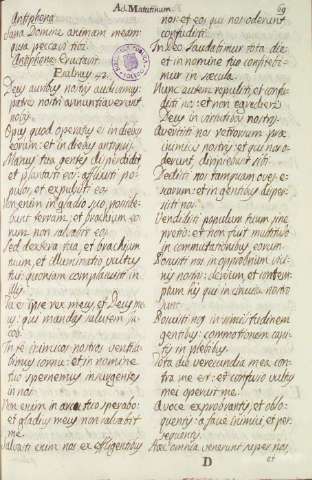 Ad Matutinum.
69
Antiphona
Sana Domine animam meam:
quia peccavi tibi.
Antiphona Eructavit
Psalmus 43.
Deus auribus nostris audivimus:
patres nostri annuntiaverunt
nobis.
Opus quod operatus es in diebus
eorum: et in diebus antiquis.
Manus tua gentes disperdidit
et plantasti eos: afflixisti po-
pulos, et expulisti eos.
Nec enim in gladio suo posside-
bunt terram: et brachium eo-
rum non salvabit eos.
Sed dextera tua, et brachium
tuum, et illuminatio vultus
tui: quoniam complacuisti in
illis.
Tu es ipse rex meus et Deus me-
us: qui mandas salutem Ja-
cob.
In te inimicos nostros ventila-
bimus cornu: et in nomine
tuo spernemus insurgentes
in nos.
Non enim in arcu meo sperabo:
et gladius meus non salvabit
me.
Salvasti enim nos ex affligentibus
nos: et eos qui nos oderunt
confudisti.
In Deo laudabimur tota die:
et in nomine tuo confitebi-
mur in sæcula.
Nunc autem repulisti, et confu-
disti nos: et non egredieris
Deus in virtutibus nostris.
Avertisti nos retrorsum post
inimicos nostros: et qui nos o-
derunt, diripiebant sibi.
Dedisti nos tamquam oves es-
carum: et in gentibus disper-
sisti nos.
Vendidisti populum tuum sine
pretio: et non fuit multitudo
in commutationibus eorum.
Posuisti nos in opprobrium vici-
nis nostris: derisum, et contem-
ptum his qui in circuitu nostro
sunt.
Posuisti nos in similitudinem
gentibus: commotionem capi-
tis in plebibus.
Tota die verecundia mea con-
tra me est: et confusio vultus
mei operuit me.
A voce exprobrantis, et oblo-
quentis: a facie inimici, et per-
sequentis.
Hæc omnia venerunt super nos,
D
et